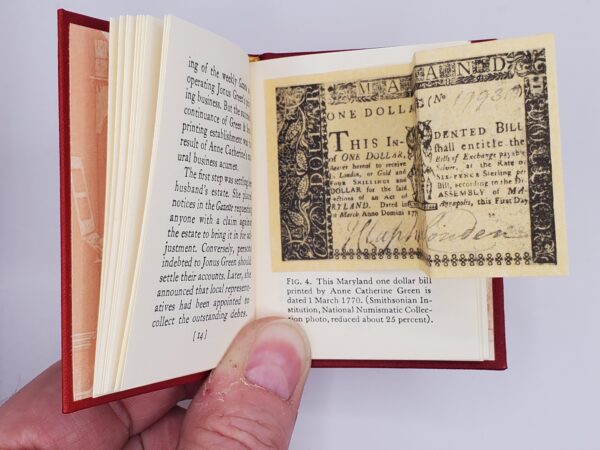 ing of the weekly Gazette
operating Jonus Green's
ing business. But the
continuance of Green &
printing establishment was
result of Anne Catherine's
ural business acumen.
The first step was settling
husband's estate. She
notices in the Gazette requesting
anyone with a claim against
the estate to bring it in for ad-
justment. Conversely, persons
indebted to Jonus Green should
settle their accounts. Later, she
announced that local represent-
atives had been appointed to
collect the outstanding debts.
[14]
MA AND
ONE DOLLAR (No 1793
THIS IN- DENTED BILL
of ONE DOLLAR, shall entitle the
hereof to receive Bills of Exchange payable
London, or Gold and Silver, at the Rate of
FOUR SHILLINGS and SIX-PENCE Sterling per
DOLLAR for the said Bill, according to the Di-
ections of an Act of ASSEMBLY of MA-
RYLAND. Dated in Annapolis, this First Day
March Anno Domini 17
DOLLAR
FIG. 4. This Maryland one dollar bill
printed by Anne Catherine Green is
dated 1 March 1770. (Smithsonian In-
stitution, National Numismatic Collec-
tion photo, reduced about 25 percent).